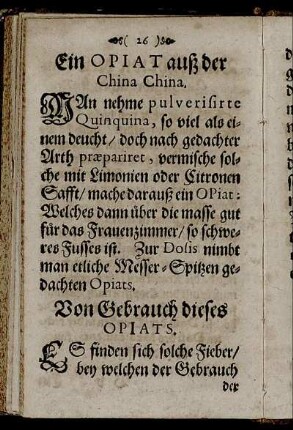 ( 26 )
Ein OPIAT auß der
China China.
MAn nehme pulverisirte
Quinquina, so viel als ei-
nem deucht/ doch nach gedachter
Arth præpariret, vermische sol-
che mit Limonien oder Citronen
Safft/ mache darauß ein OPiat:
Welches dann über die masse gut
für das Frauenzimmer/ so schwe-
res Fusses ist. Zur Dosis nimbt
man etliche Messer-Spitzen ge-
dachten Opiats.
Von Gebrauch dieses
OPIATS.
ES finden sich solche Fieber/
bey welchen der Gebrauch
der